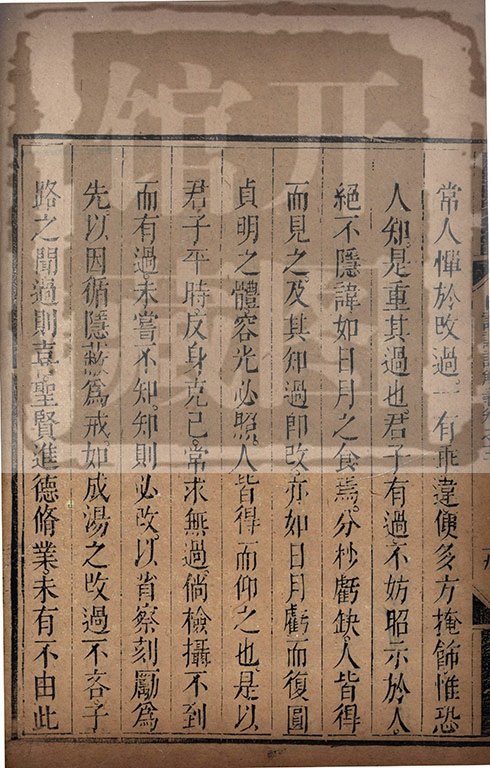 常人憚於改過。一有乖違便多方掩飾惟恐
人知。是重其過也。君子有過不妨昭示於人。
絕不隱諱如日月之食焉。分杪虧缺。人皆得
而見之。及其知過卽改。亦如日月虧而復圓
貞明之體容光必照。人皆得而仰之也。是以
君子平時反身克己。常求無過。倘檢攝不到
而有過未嘗不知。知則必改。以省察刻勵爲
先以因循隱蔽爲戒。如成湯之改過不吝子
路之聞過則喜。聖賢進德脩業。未有不由此